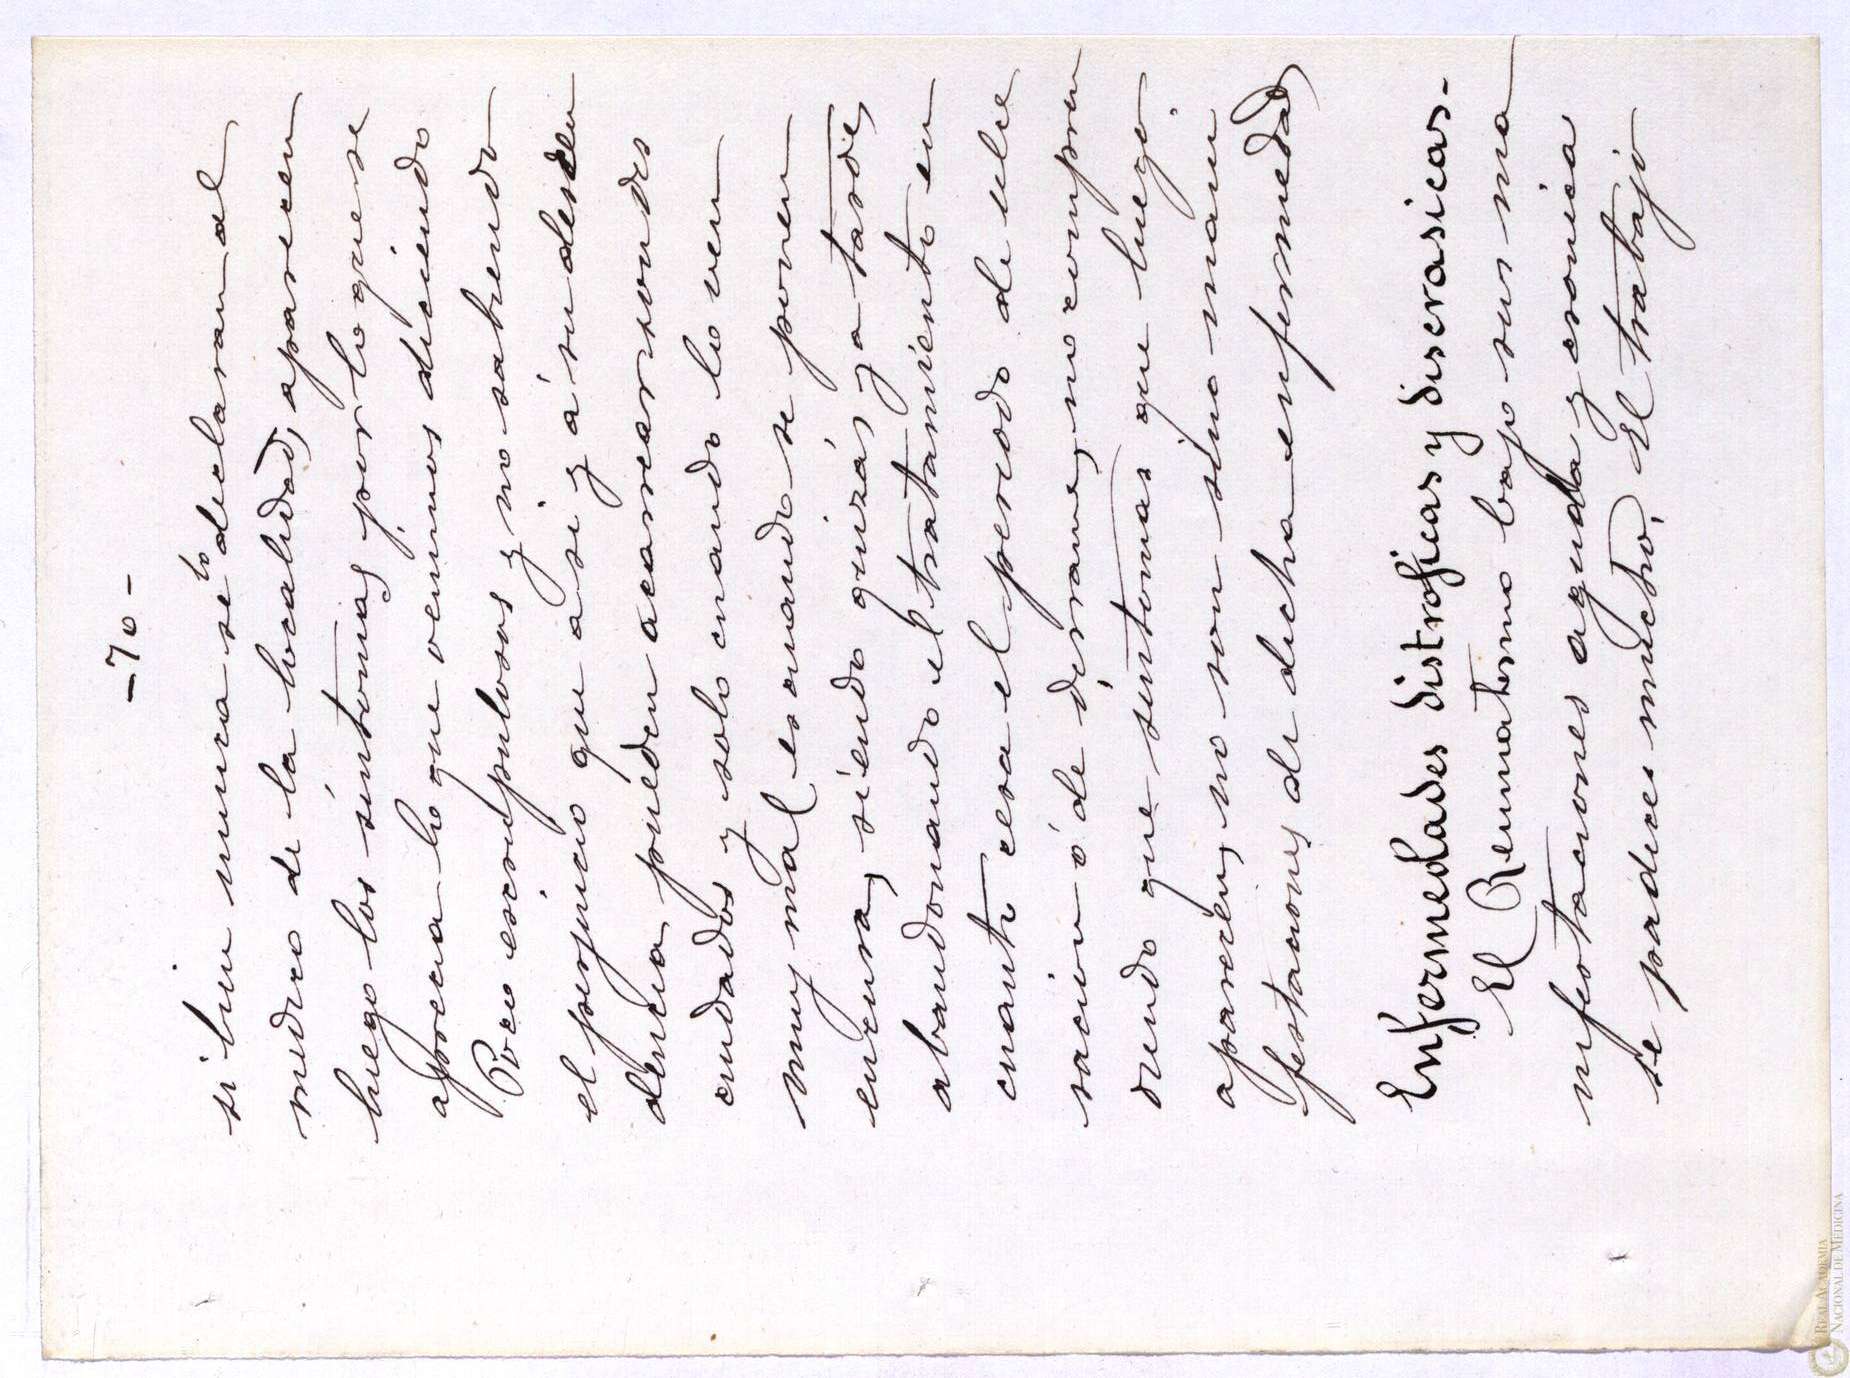 -70-
si bien nunca se lo declaran al
medico de la localidad, aparecen
luego los síntomas, por lo que se
aprecia lo que venimos diciendo
Poco escrupulosos, y no sabiendo
el perjuicio que á si y á su descen
dencia, pueden acarrear son des
cuidados y solo cuando lo ven
muy mal es cuando se ponen
en cura, siendo quizás ya tarde,
abandonando el tratamiento en
cuanto cesa el periodo de ulce
racion ó de derrame, no compren
diendo que síntomas que luego
aparecen, no son sino mani
festaciones de dicha enfermedad
Enfermedades distroficas y discrasicas.-
El Reumatismo bajo sus ma
nifestaciones aguda y cronica
se padece mucho. El trabajo
REAL ACADEMIA
NACIONAL DE MEDICINA